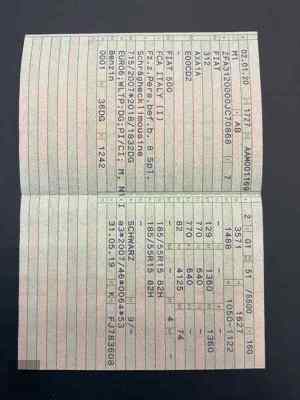 02.01.20 1727 AAM001169
M1 AB
ZFA3120000JC7A868 7
FIAT
312
AXA1A
E00CD2
FIAT 500
FCA ITALY (I)
Fz.z.Pers.bef.b. 8 Spl.
Schrägheck limousine
715/2007*2018/1832DG
EURO6;WLTP;DG;PI/CI; M, N1 I
Benzin
0001 36DG 1242
2 01 51 /5500 160
3571 1627
1488 1050-1122
- - -
1229 1360 1360
770 640 -
770 640 -
82 4125 74
- - 4 -
185/55R15 82H
185/55R15 82H
-
SCHWARZ 9/-
e3*2007/46*0064*53
31.05.19 K FJ783608